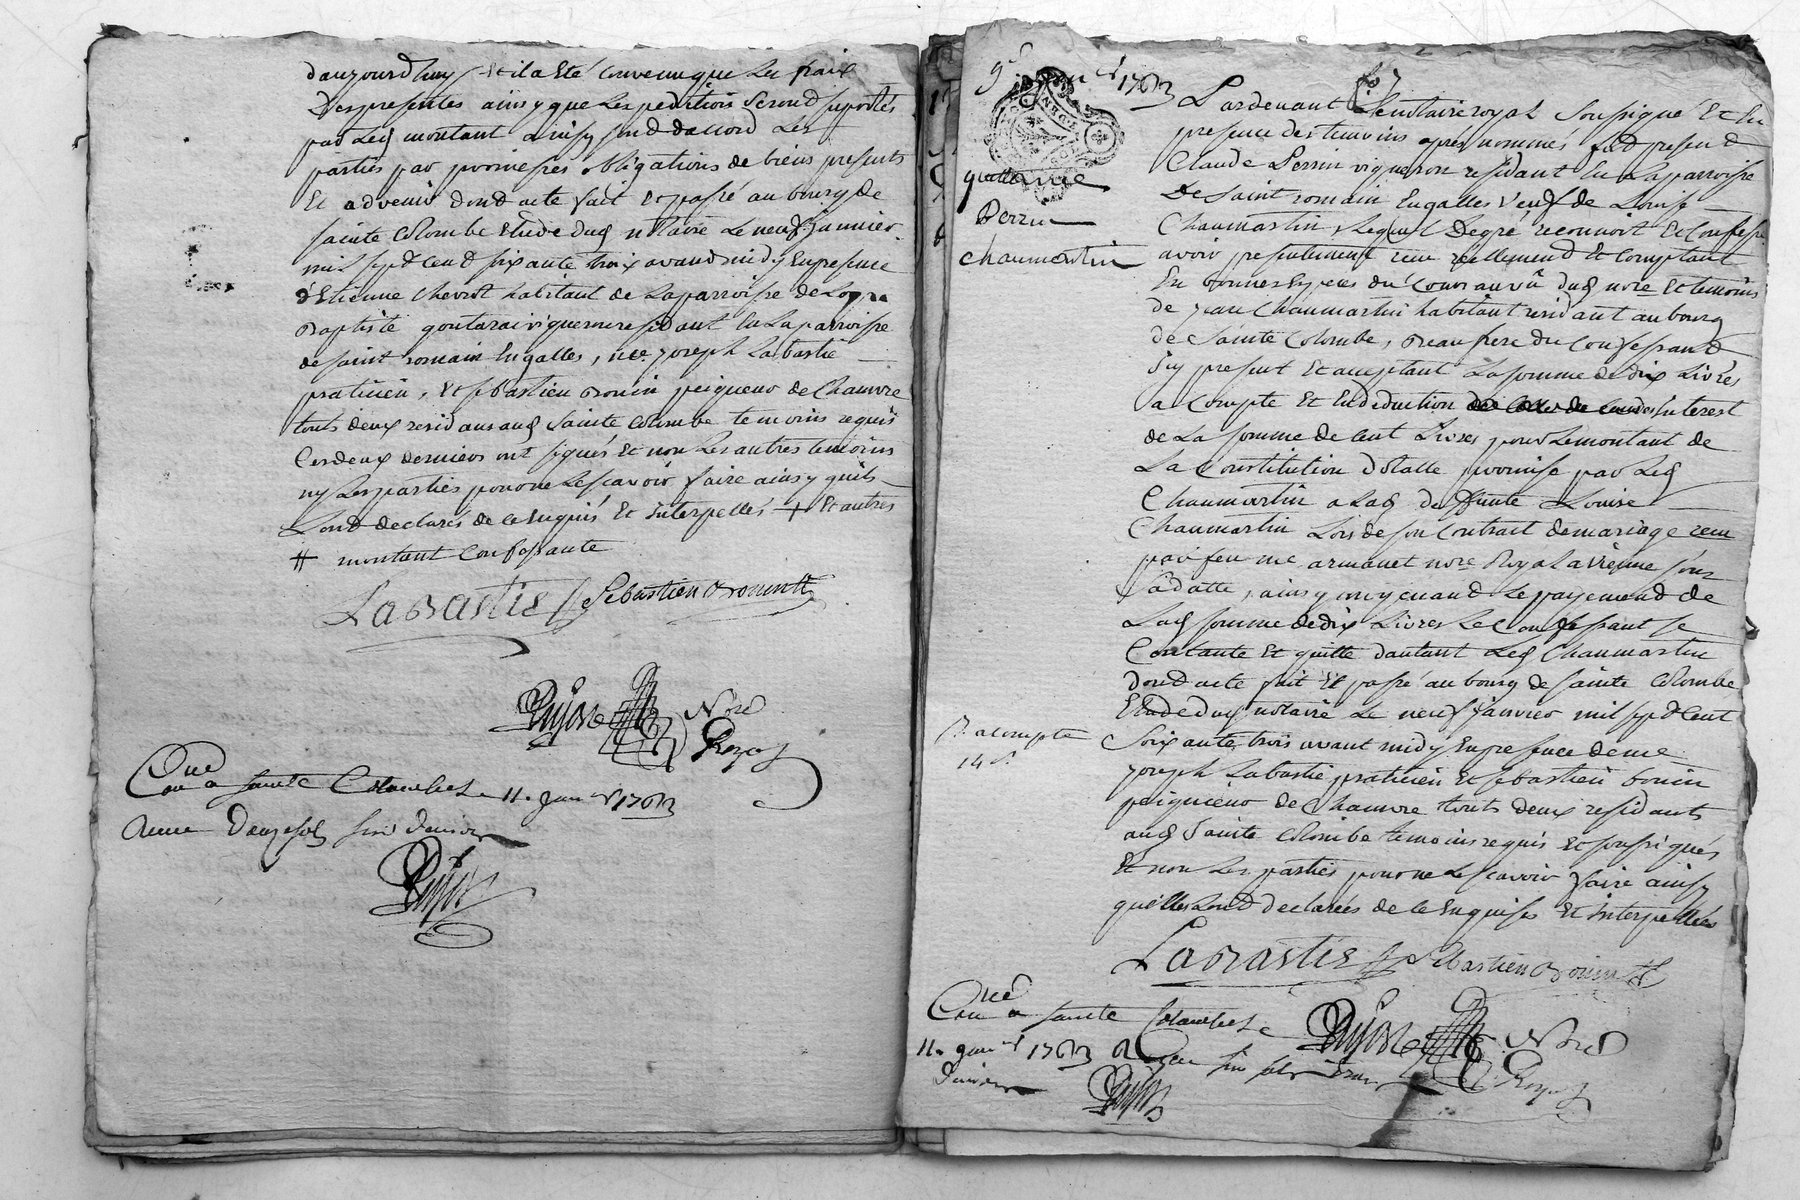 daujourdhuy et il a eté convenu que les frais
des presentes ainsy que lexpedition serond suportés
par led montant ainsy sond daccord les
parties par promesses obligations de biens presents
et advenir dond acte fait et passé au bourg de
sainte Colombe etude dud notaire le neuf janvier
mil sept cend soixante trois avand midy en presence
d'Etienne Chevrot habitant de la parroisse de
Baptiste vigneron residant en la parroisse
de saint romain en galles, me joseph Labastie
praticien, et sebastien Bonin peigneur de Chanvre
touts deux residans aud sainte Colombe temoins requis
ces deux derniers ont signés et non les autres temoins
ny les parties pour ne le scavoir faire ainsy quils
lond declarés de ce enquis et interpellés + et autres
# montant confessante
Labastie Sebastien Bonin
Nore
Royal
Con‘lé a sainte Colombe le 11. janer 1763
Reçu sols six deniers
9e janer 1763
quittance
Perrin
chaumartin
Pardevant le notaire royal soussigné et en
presence des temoins aprés nommés fut presend
Claude Perrin vigneron residant en la parroisse
de saint romain en galles veuf de Louise
Chaumartin, lequel de gré reconnoit et confesse
avoir presentement receu reellemend et comptant
en bonnes especes du cour au vû dud nore et temoins
de jean Chaumartin habitant residant au bourg
de sainte Colombe, beaufrere du confessand
icy present et acceptant la somme de dix livres
a compte et en deduction des interest
de la somme de cent livres pour le montant de
la constitution dotalle promise par led
Chaumartin a lad deffunte Louise
Chaumartin lors de son contrait de mariage receu
par feu me armanet nore Royal a vienne sous
sa datte, ainsy moyenand le payemend de
lad somme de dix livres le confessant se
contante et quitte dautant led Chaumartin
dond acte fait et passé au bourg de sainte Colombe
etude dud notaire le neuf janvier mil sept cent
soixante trois avant midy en presence de me
joseph Labastie praticien et sebastien bonin
peigneur de chanvre touts deux residants
aud sainte Colombe temoins requis et soussignés
et non les parties pour ne le scavoir faire ainsy
quelles lond declarées de ce enquises et interpellées
a compte
14 s.
Labastie Sebastien Bonin
Nore
Royal
Con‘lé a sainte Colombe le
11. janer 1763
deniers